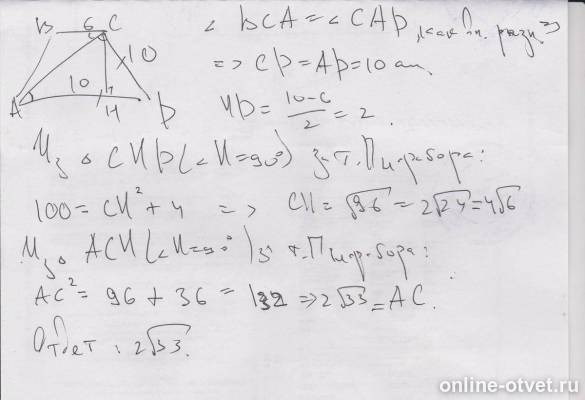 B 6 C
10
10
A H D
∠ BCA = ∠ CAD, как вн. разн ⇒
⇒ CD = AD = 10 см.
HD = (10-6)/2 = 2.
Из △ CHD (∠H=90°) по т. Пифагора:
100 = CH² + 4 ⇒ CH = √96 = 2√24 = 4√6
Из △ ACH (∠H=90°) т. Пифагора:
AC² = 96 + 36 = 132 ⇒ 2√33 = AC.
Ответ: 2√33.
online-otvet.ru